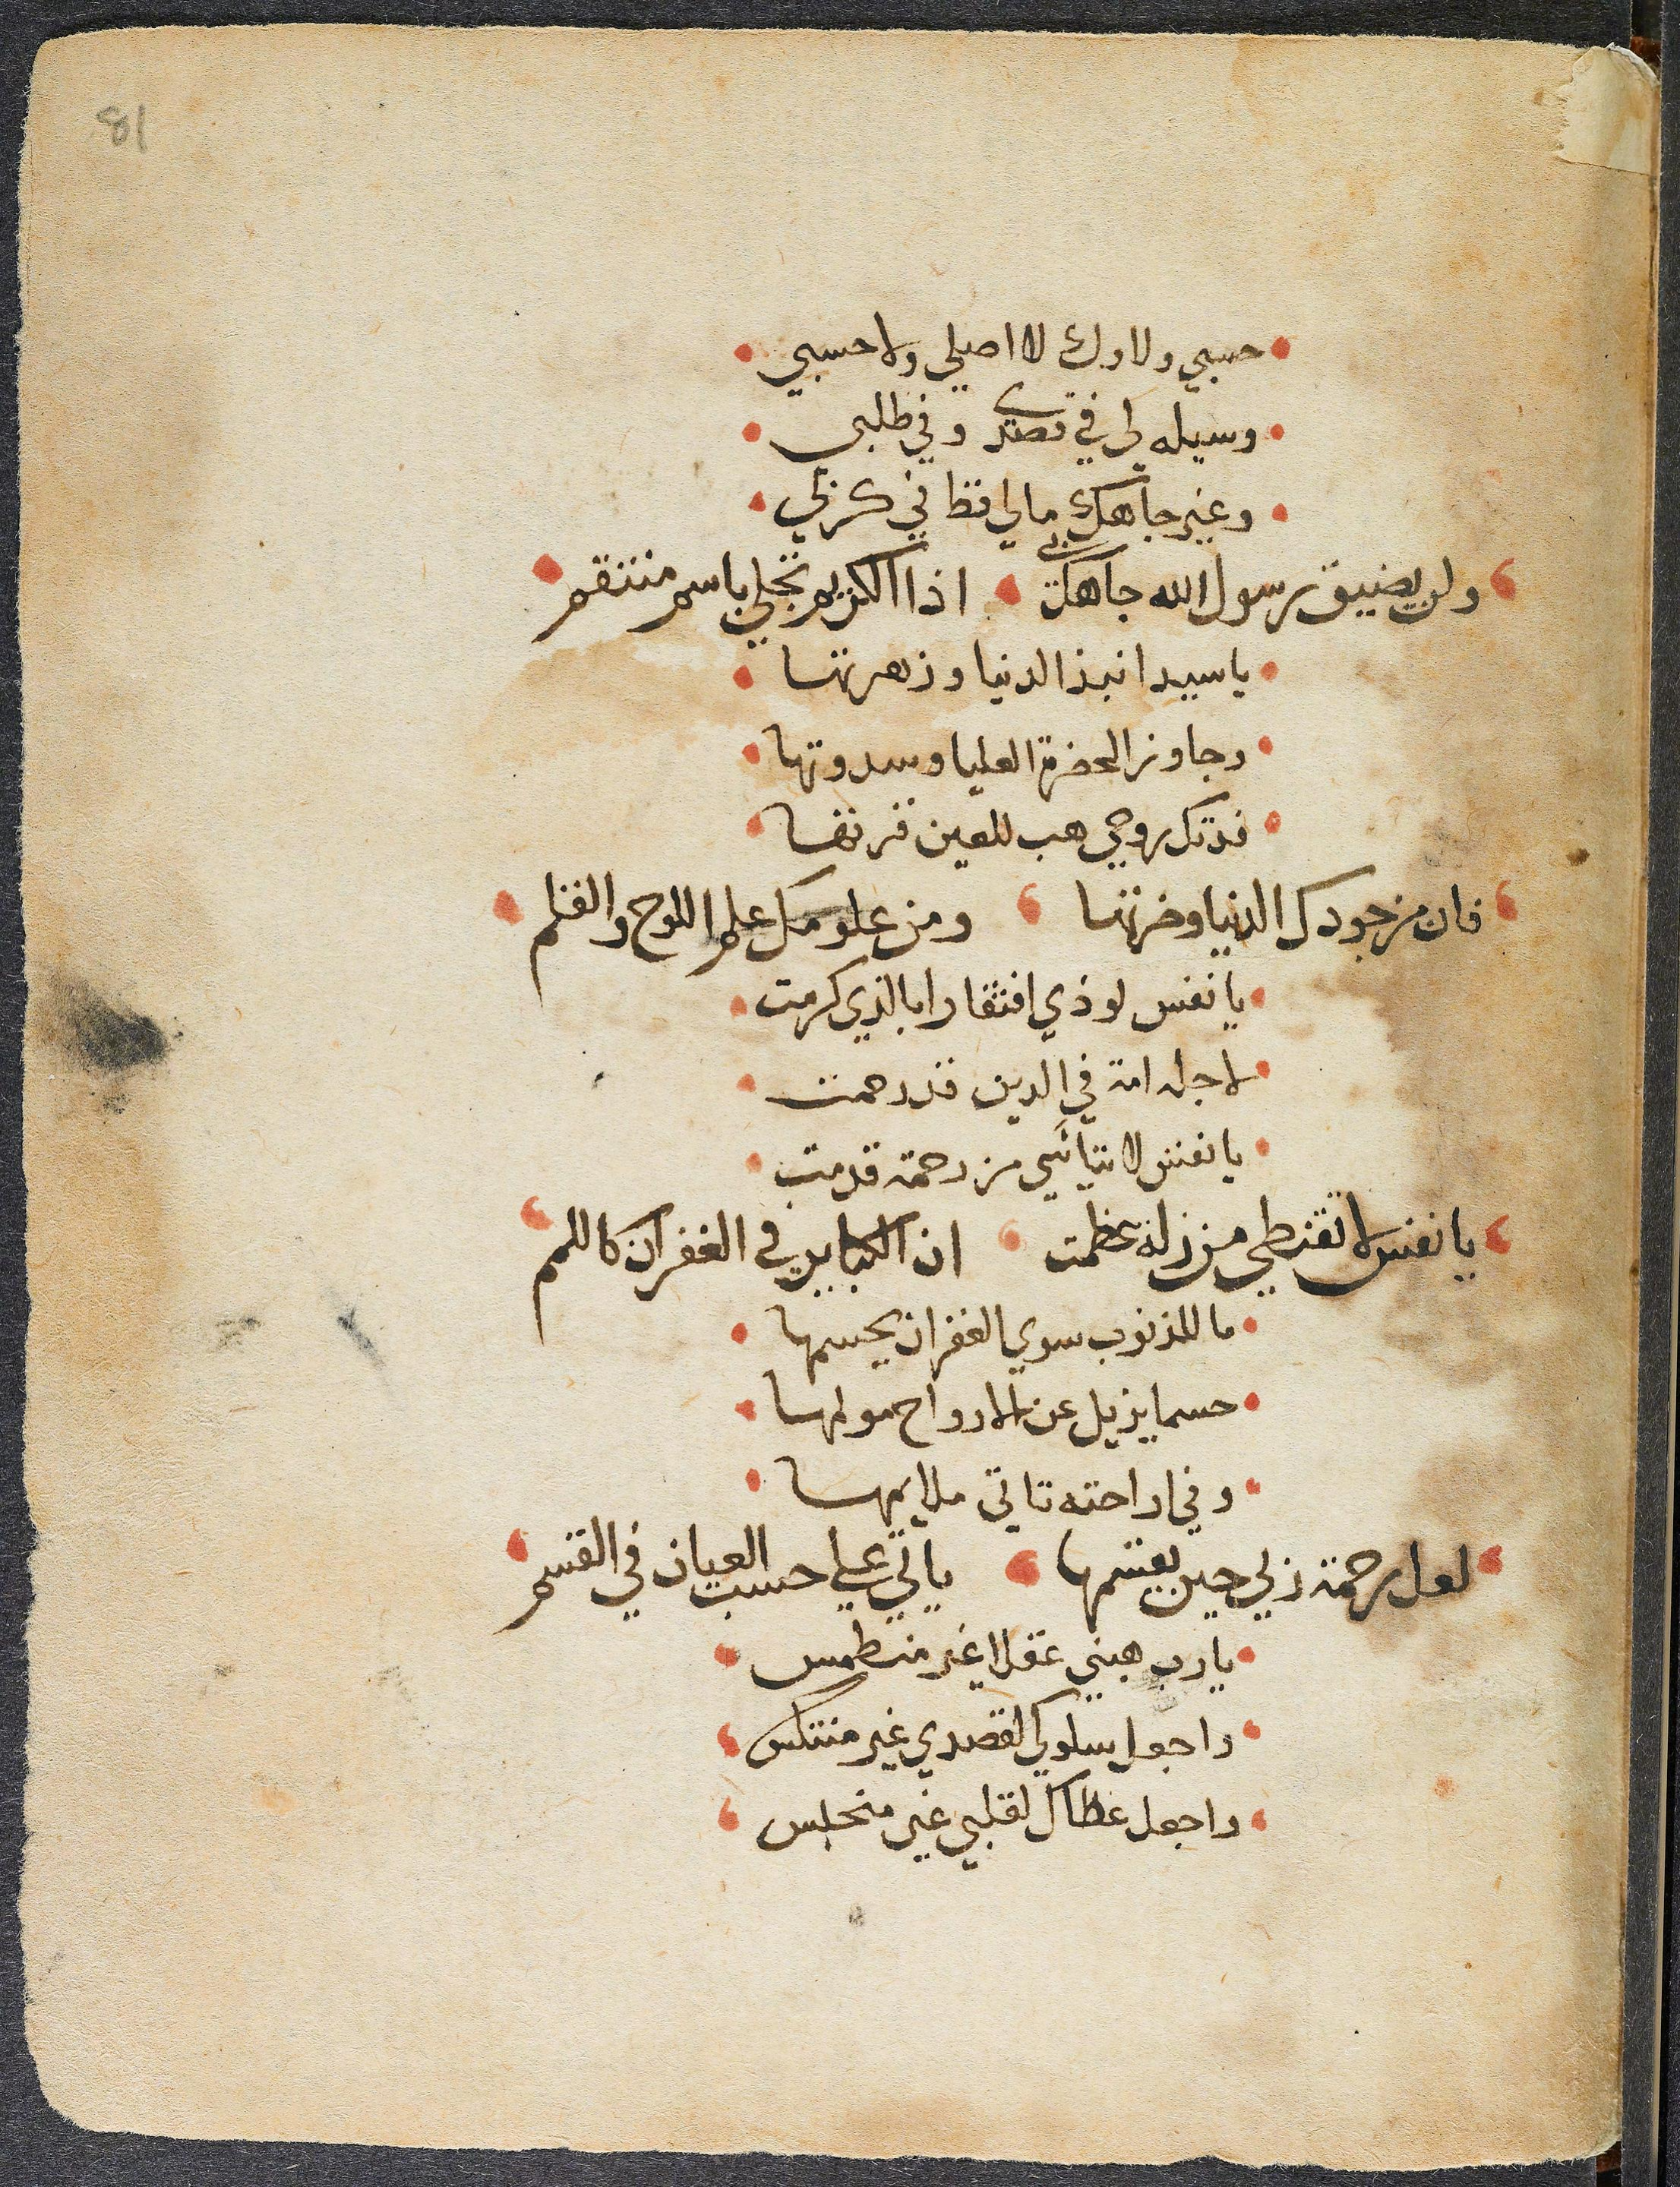 81
حسبي ولاوك لا اصلي ولا حسبي
وسيله لي في قصدي وفي طلبي
وغير جاهك مالي قط في كربي
ولن يضيق رسول الله جاهك بي اذا الكريم تجلي باسم منتقم
يا سيدا نبذ الدنيا وزهرتها
وجاوز الحضرة العليا وسدرتها
فدتك روحي هب للعين قرتها
فان من جودك الدنيا وضرتها ومن علومك علم اللوح والقلم
يا نفس لوذي افتقارا بالذي كرمت
لاجله امة في الدين قد رحمت
يا نفس لا تيائسي من رحمة قدمت
يا نفس لا تقنطي من زلة عظمت ان الكباير في الغفران كاللمم
ما للذنوب سوي الغفران يحسمها
حسما يزيل عن الارواح مولمها
وفي اراحته تاتي ملايمها
لعل رحمة ربي حين يقسمها ياتي علي حسب العصيان في القسم
يا رب هبني عقلا غير منطمس
واجعل سلوكي لقصدي غير منتكس
واجعل عطاك لقلبي غير منحبس